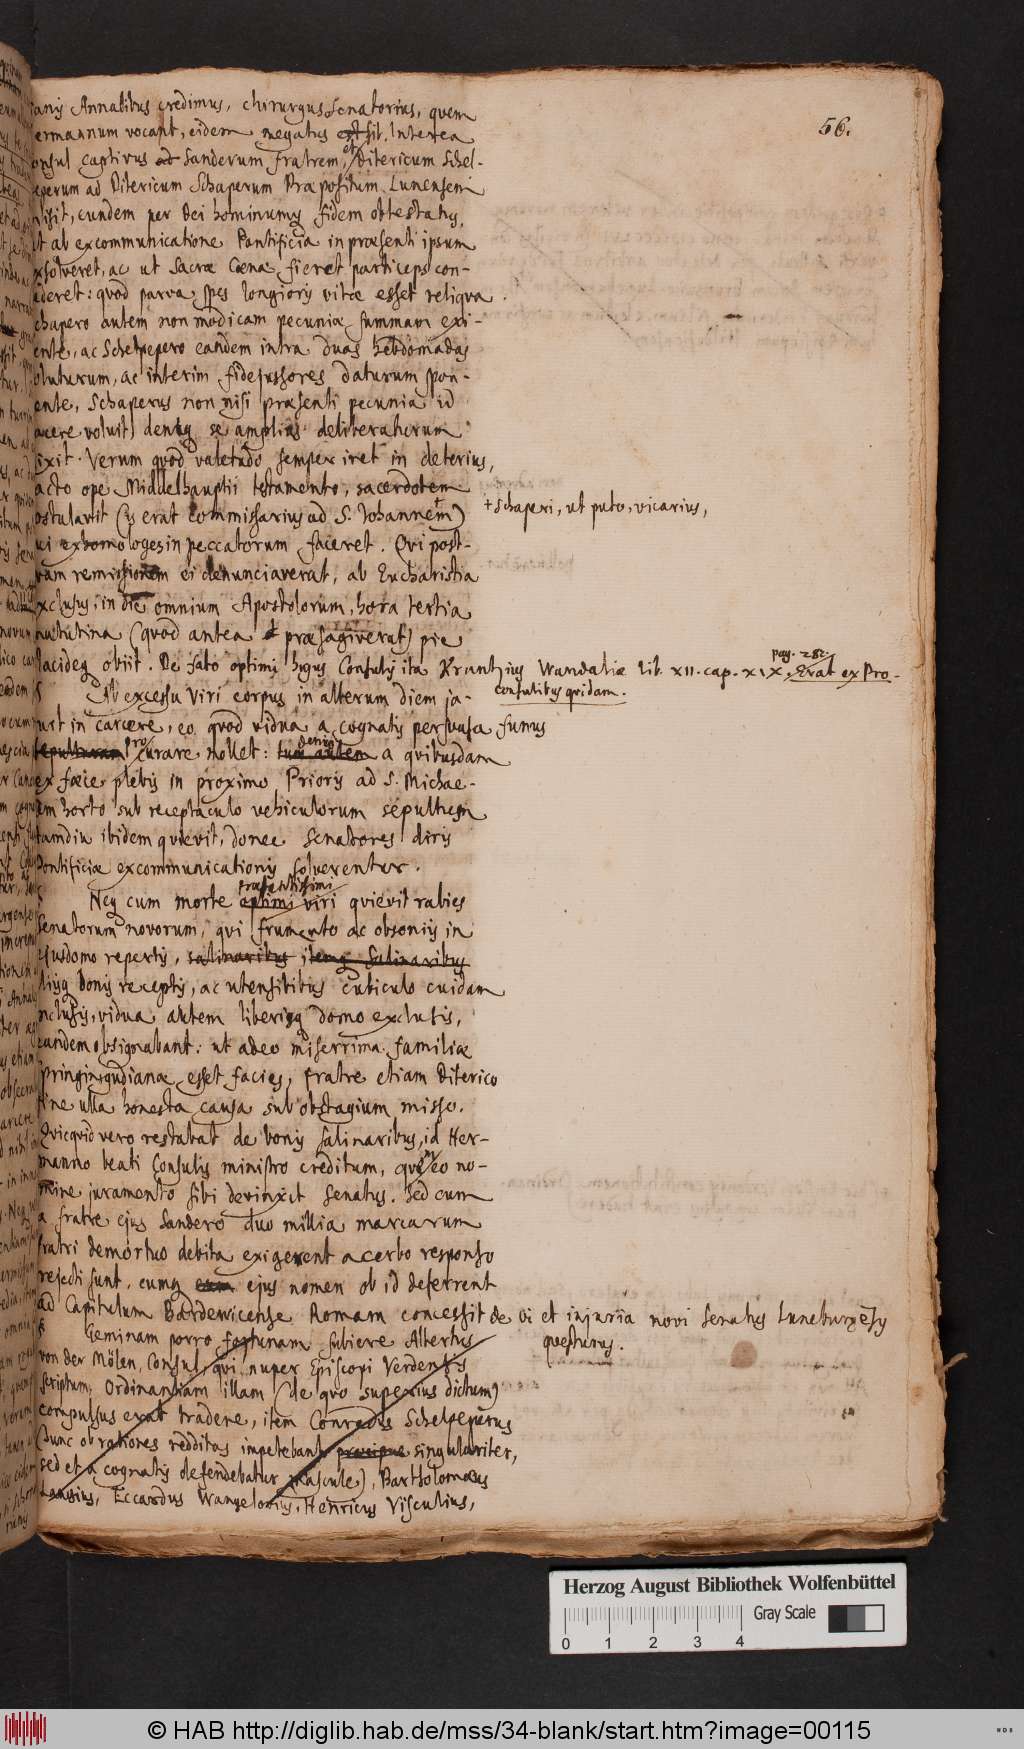 56.
Annalibus credimus, chirurgus Senatorius, quem
ermannum vocant, eidem negatus sit. Interea
onsul captivus ad Sanderum fratrem, et Ditericum Schel-
eperum ad Ditericum Schaperum Præpositum Lunensem
misit, eundem per Dei hominumq fidem obtestatus,
ut ab excommunicatione Pontificia in præsenti ipsum
exsolveret, ac ut Sacræ Cœnæ fieret particeps con-
cederet: quod parva spes longioris vitæ esset reliqua.
chapero autem non modicam pecuniæ summam exi-
ente, ac Schelpepero eandem intra duas hebdomadas
oluturum, ac interim fidejussores daturum spon-
ente, Schaperus non nisi præsenti pecunia id
acere voluit, deniq se amplius deliberaturum
ixit. Verum quod valetudo semper iret in deterius,
acto ope Middelhauptii testamento, sacerdotem
ostulavit (is erat commissarius ad S. Johannem)+
+ Schaperi, ut puto, vicarius,
ui exhomologesin peccatorum faceret. Qui post-
vam remissionem ei denunciaverat, ab Eucharistia
exclusus, in die omnium Apostolorum, hora tertia
matutina (quod antea præsagiverat) pie
placideq obiit. De fato optimi hujus Consulis ita Krantzius Wandaliæ lib. XII. cap. XIX. pag. 282. Erat ex Pro-
consulibus quidam.
Ab excessu Viri corpus in alterum diem ja-
uit in carcere, eo quod vidua a cognatis persuasa funus
sepulturam procurare nollet: tum autem denique a quibusdam
ex fæce plebis in proximo Prioris ad S. Michae-
em horto sub receptaculo vehiculorum sepultum
tamdiu ibidem quievit, donec Senatores diris
Pontificiæ excommunicationis solverentur.
Neq cum morte optimi præstantissimi viri quievit rabies
Senatorum novorum, qui frumento ac obsoniis in
ejusdomo repertis, salinaribus itemq Salinaribus
aliisq bonis receptis, ac utensilibus cubiculo cuidam
inclusis, vidua autem liberisq domo exclusis,
eandem obsignabant: ut adeo miserrima familiæ
Springingudianæ esset facies, fratre etiam Diterico
sine ulla honesta causa sub obstagium misso.
Quicquid vero restabat de bonis salinaribus, id Her-
manno beati Consulis ministro creditum, quem eo no-
mine juramento sibi devinxit Senatus. Sed cum
a fratre ejus Sandero duo millia marcarum
fratri demortuo debita exigerent acerbo responso
rejecti sunt, cumq eum ejus nomen ob id deferrent
ad Capitulum Bardewicense Romam concessit de vi et injuria novi Senatus Luneburgensis
questurus.
Geminam porro fortunam subiere Albertus
von der Mölen, Consul, qui nuper Episcopi Verdensis
scriptum, Ordinantiam illam (de quo superius dictum)
compulsus erat tradere, item Conradus Schelpeperus
(hunc ob rationes redditas impetebant præcipue singulariter,
sed et a cognatis defendebatur mascule), Bartholomæus
Langius, Eccardus Wangelovius, Henricus Visculius,
Herzog August Bibliothek Wolfenbüttel
Gray Scale
0 1 2 3 4
© HAB http://diglib.hab.de/mss/34-blank/start.htm?image=00115